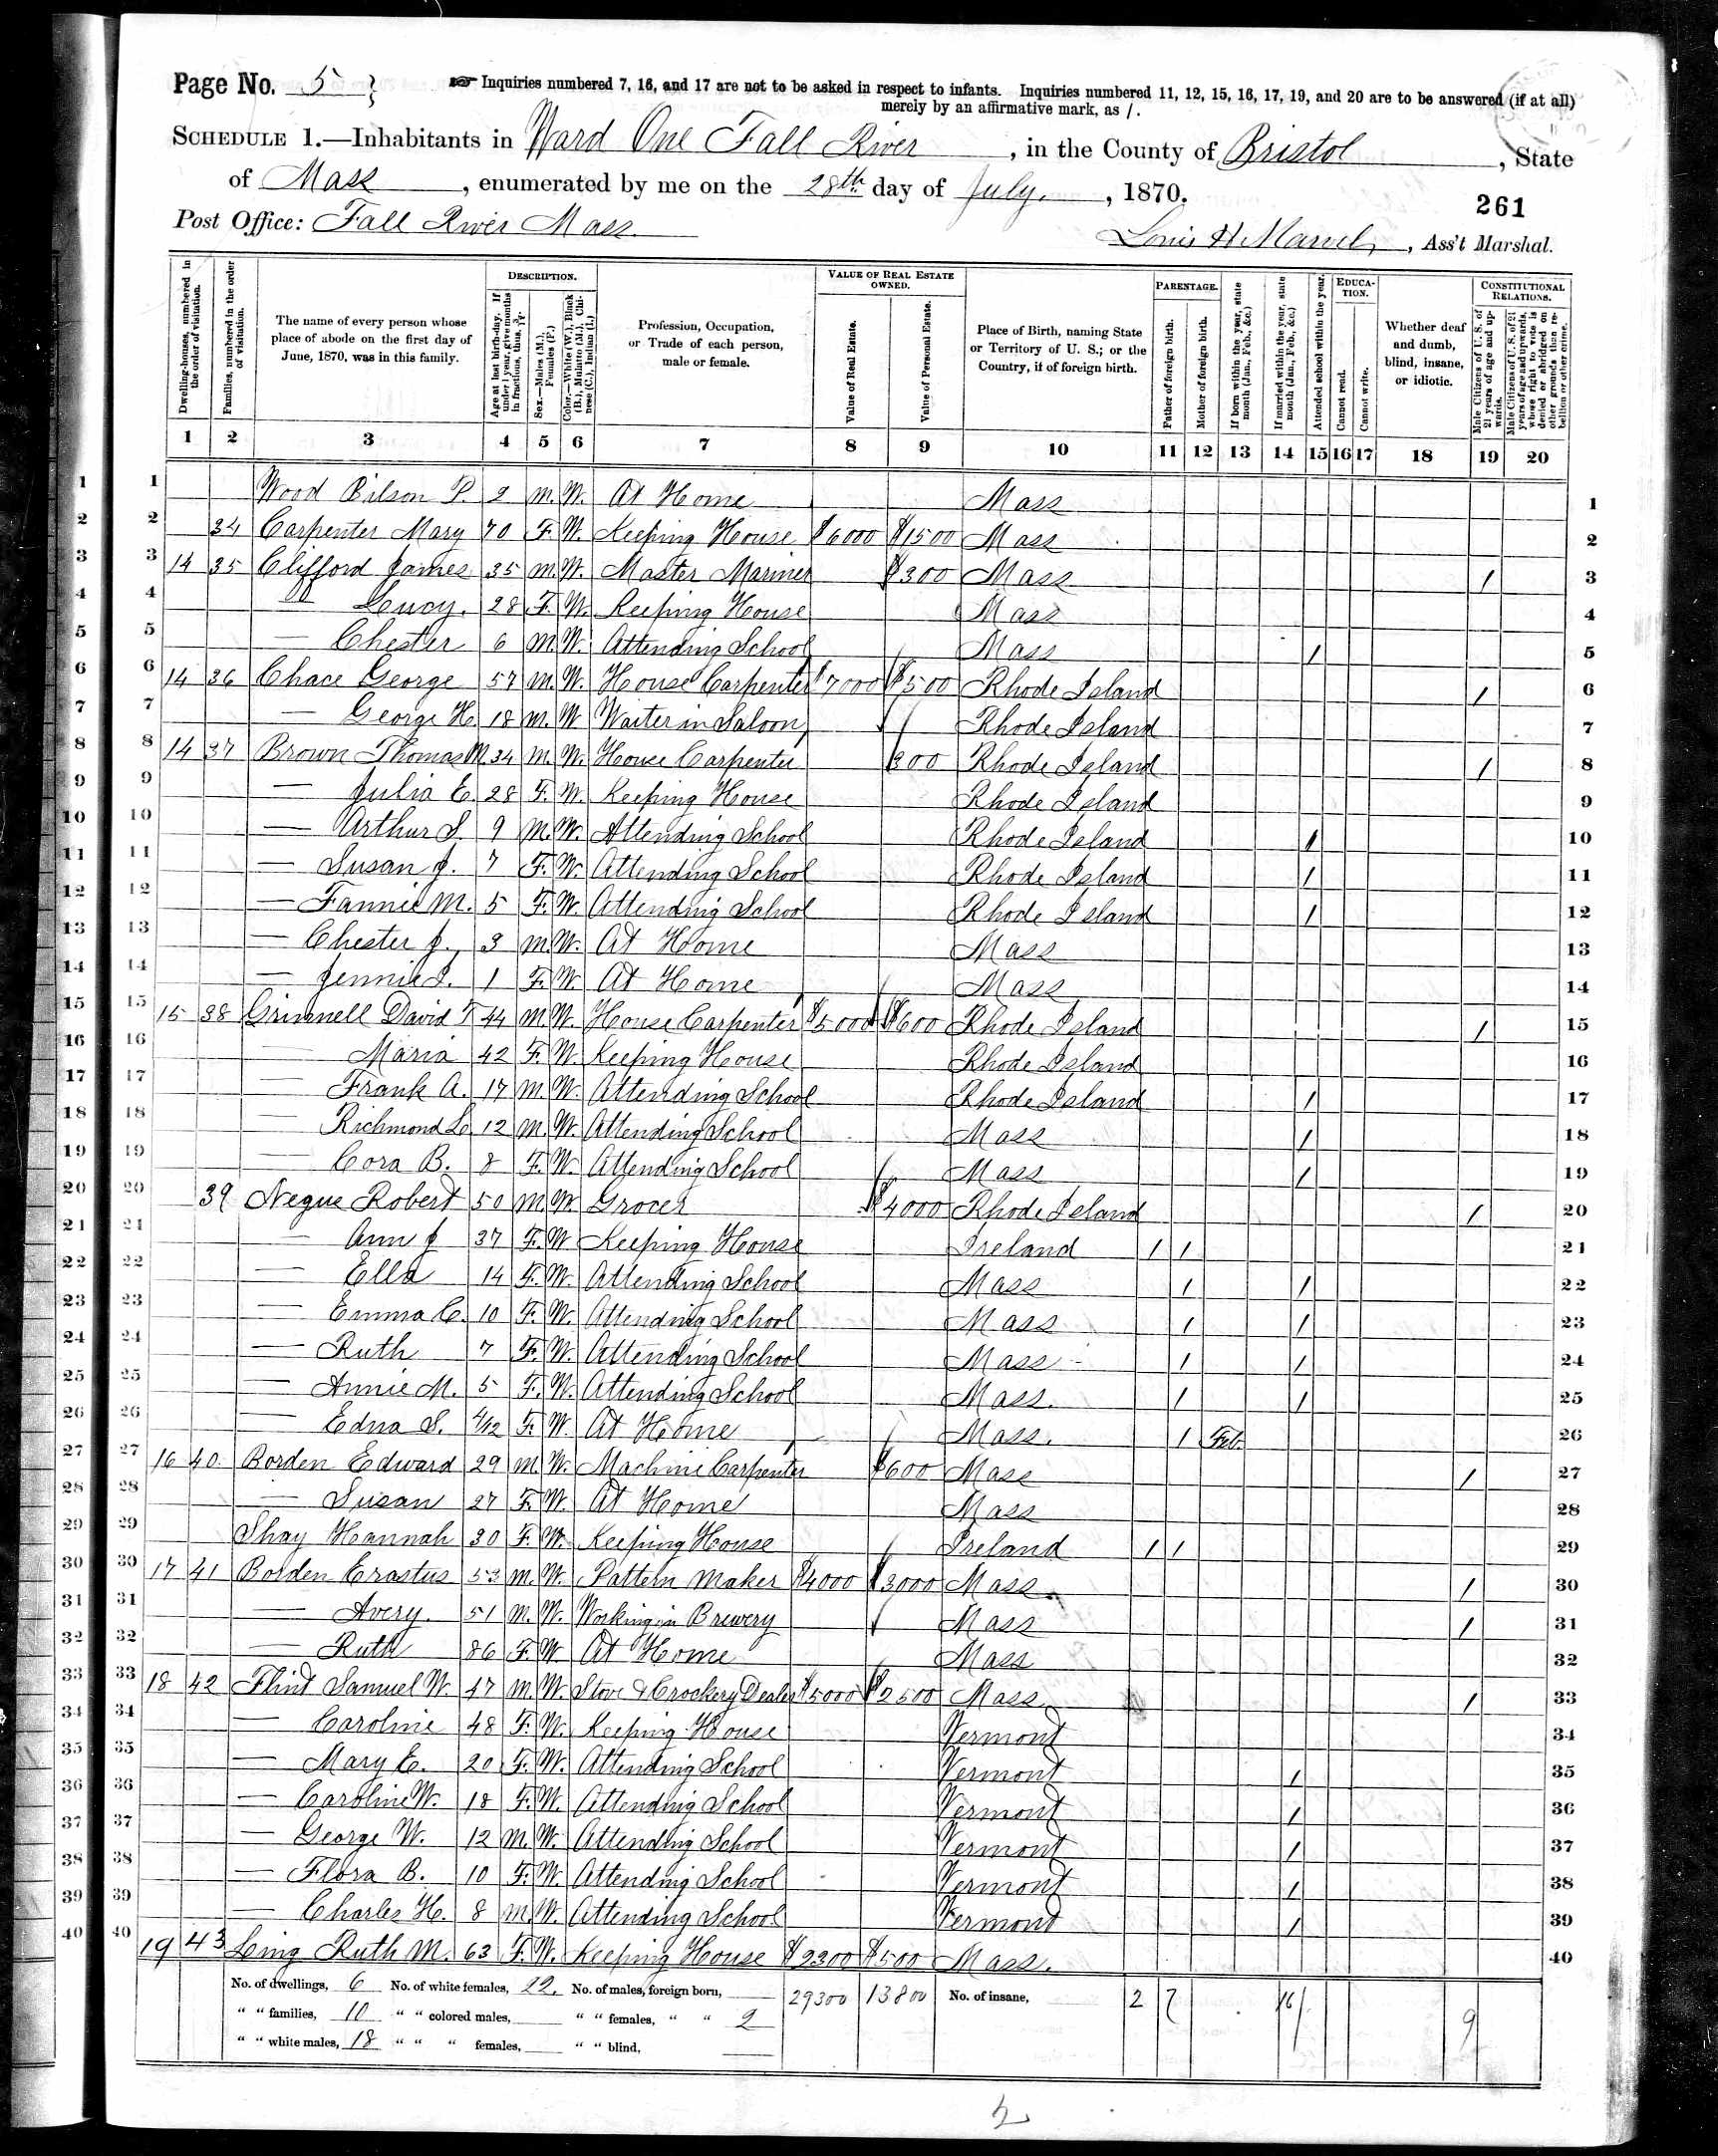 Page No. 5
Inquiries numbered 7, 16, and 17 are not to be asked in respect to infants. Inquiries numbered 11, 12, 15, 16, 17, 19, and 20 are to be answered (if at all)
merely by an affirmative mark, as /.
SCHEDULE 1.—Inhabitants in Ward One Fall River, in the County of Bristol, State
of Mass, enumerated by me on the 28th day of July, 1870.
261
Post Office: Fall River Mass
Louis H Marvel, Ass't Marshal.
Dwelling-houses, numbered in the order of visitation.
Families, numbered in the order of visitation.
The name of every person whose place of abode on the first day of June, 1870, was in this family.
DESCRIPTION.
Age at last birth-day. If under 1 year, give months in fractions, thus, 3/12.
Sex.—Males (M.), Females (F.)
Color.—White (W.), Black (B.), Mulatto (M.), Chinese (C.), Indian (I.)
Profession, Occupation, or Trade of each person, male or female.
VALUE OF REAL ESTATE OWNED.
Value of Real Estate.
Value of Personal Estate.
Place of Birth, naming State or Territory of U. S.; or the Country, if of foreign birth.
PARENTAGE.
Father of foreign birth.
Mother of foreign birth.
If born within the year, state month (Jan., Feb., &c.)
If married within the year, state month (Jan., Feb., &c.)
Attended school within the year.
EDUCATION.
Cannot read.
Cannot write.
Whether deaf and dumb, blind, insane, or idiotic.
CONSTITUTIONAL RELATIONS.
Male Citizens of U. S. of 21 years of age and upwards.
Male Citizens of U. S. of 21 years of age and upwards, whose right to vote is denied or abridged on other grounds than rebellion or other crime.
1 2 3 4 5 6 7 8 9 10 11 12 13 14 15 16 17 18 19 20
1 1 Wood Bilson P. 2 M. W. At Home Mass 1
2 2 34 Carpenter Mary 70 F. W. Keeping House $6000 $1500 Mass 2
3 3 14 35 Clifford James 35 M. W. Master Mariner $300 Mass / 3
4 4 — Lucy. 28 F. W. Keeping House Mass 4
5 5 — Chester 6 M. W. Attending School Mass / 5
6 6 14 36 Chace George 57 M. W. House Carpenter $7000 $500 Rhode Island / 6
7 7 — George H. 18 M. W Waiter in Saloon Rhode Island 7
8 8 14 37 Brown Thomas M 34 M. W. House Carpenter 300 Rhode Island / 8
9 9 — Julia E. 28 F. W. Keeping House Rhode Island 9
10 10 — Arthur S. 9 M. W. Attending School Rhode Island / 10
11 11 — Susan J. 7 F. W. Attending School Rhode Island / 11
12 12 — Fannie M. 5 F. W. Attending School Rhode Island / 12
13 13 — Chester J. 3 M. W. At Home Mass 13
14 14 — Jennie I. 1 F. W. At Home Mass 14
15 15 15 38 Grinnell David T 44 M. W. House Carpenter $5000 $600 Rhode Island / 15
16 16 — Maria 42 F. W. Keeping House Rhode Island 16
17 17 — Frank A. 17 M. W. Attending School Rhode Island / 17
18 18 — Richmond L. 12 M. W. Attending School Mass / 18
19 19 — Cora B. 8 F. W. Attending School Mass / 19
20 20 39 Negus Robert 50 M. W. Grocer $4000 Rhode Island / 20
21 21 — Ann J 37 F. W Keeping House Ireland / / 21
22 22 — Ella 14 F. W. Attending School Mass / / 22
23 23 — Emma C. 10 F. W. Attending School Mass / / 23
24 24 — Ruth 7 F. W. Attending School Mass / / 24
25 25 — Annie M. 5 F. W. Attending School Mass. / / 25
26 26 — Edna S. 4/12 F. W. At Home Mass. / Feb. 26
27 27 16 40 Borden Edward 29 M. W. Machine Carpenter $600 Mass / 27
28 28 — Susan 27 F. W. At Home Mass 28
29 29 Shay Hannah 30 F. W. Keeping House Ireland / / 29
30 30 17 41 Borden Erastus 53 M. W. Pattern Maker $4000 $3000 Mass. / 30
31 31 — Avery. 51 M. W. Working in Brewery Mass / 31
32 32 — Ruth 86 F. W At Home Mass 32
33 33 18 42 Flint Samuel W. 47 M. W. Stove & Crockery Dealer $5000 $2500 Mass / 33
34 34 — Caroline 48 F. W. Keeping House Vermont 34
35 35 — Mary E. 20 F. W. Attending School Vermont / 35
36 36 — Caroline W. 18 F. W. Attending School Vermont / 36
37 37 — George W. 12 M. W. Attending School Vermont / 37
38 38 — Flora B. 10 F. W. Attending School Vermont / 38
39 39 — Charles H. 8 M. W. Attending School Vermont / 39
40 40 19 43 Ruth M. 63 F. W. Keeping House $2300 $500 Mass. 40
No. of dwellings, 6 No. of white females, 22. No. of males, foreign born, 29300 13800 No. of insane, 2 7 16 9
" " families, 10 " " colored males, " " females, " " 2
" " white males, 18 " " " females, " " blind,